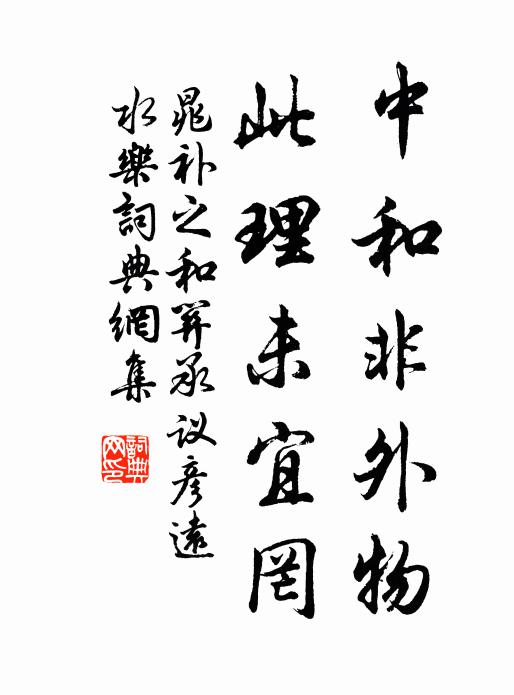 中和非外物
此理未宜罔
晁补之和羿承议彦遠
水樂詞典網集
詞典網印